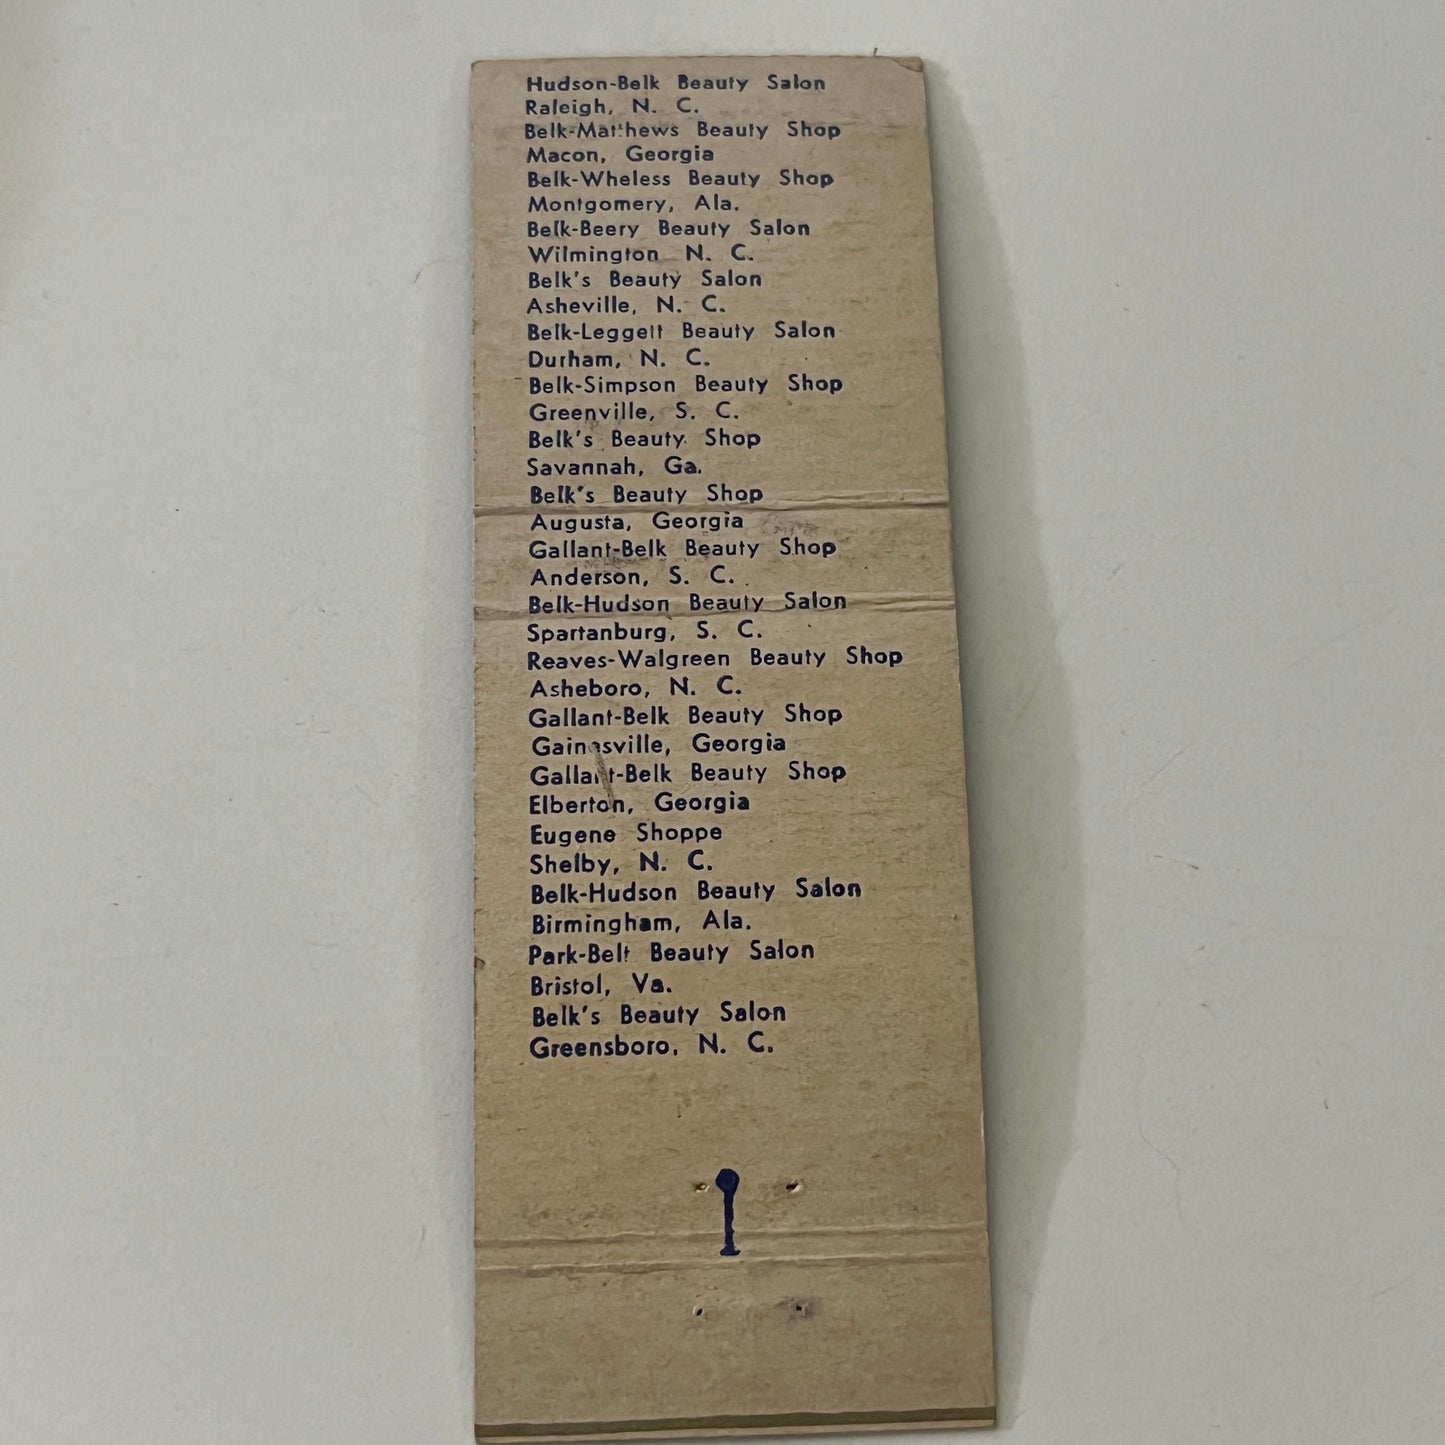 Hudson-Belk Beauty Salon
Raleigh, N. C.
Belk-Matthews Beauty Shop
Macon, Georgia
Belk-Wheless Beauty Shop
Montgomery, Ala.
Belk-Beery Beauty Salon
Wilmington N. C.
Belk's Beauty Salon
Asheville, N. C.
Belk-Leggett Beauty Salon
Durham, N. C.
Belk-Simpson Beauty Shop
Greenville, S. C.
Belk's Beauty Shop
Savannah, Ga.
Belk's Beauty Shop
Augusta, Georgia
Gallant-Belk Beauty Shop
Anderson, S. C.
Belk-Hudson Beauty Salon
Spartanburg, S. C.
Reaves-Walgreen Beauty Shop
Asheboro, N. C.
Gallant-Belk Beauty Shop
Gainesville, Georgia
Gallant-Belk Beauty Shop
Elberton, Georgia
Eugene Shoppe
Shelby, N. C.
Belk-Hudson Beauty Salon
Birmingham, Ala.
Park-Belt Beauty Salon
Bristol, Va.
Belk's Beauty Salon
Greensboro, N. C.